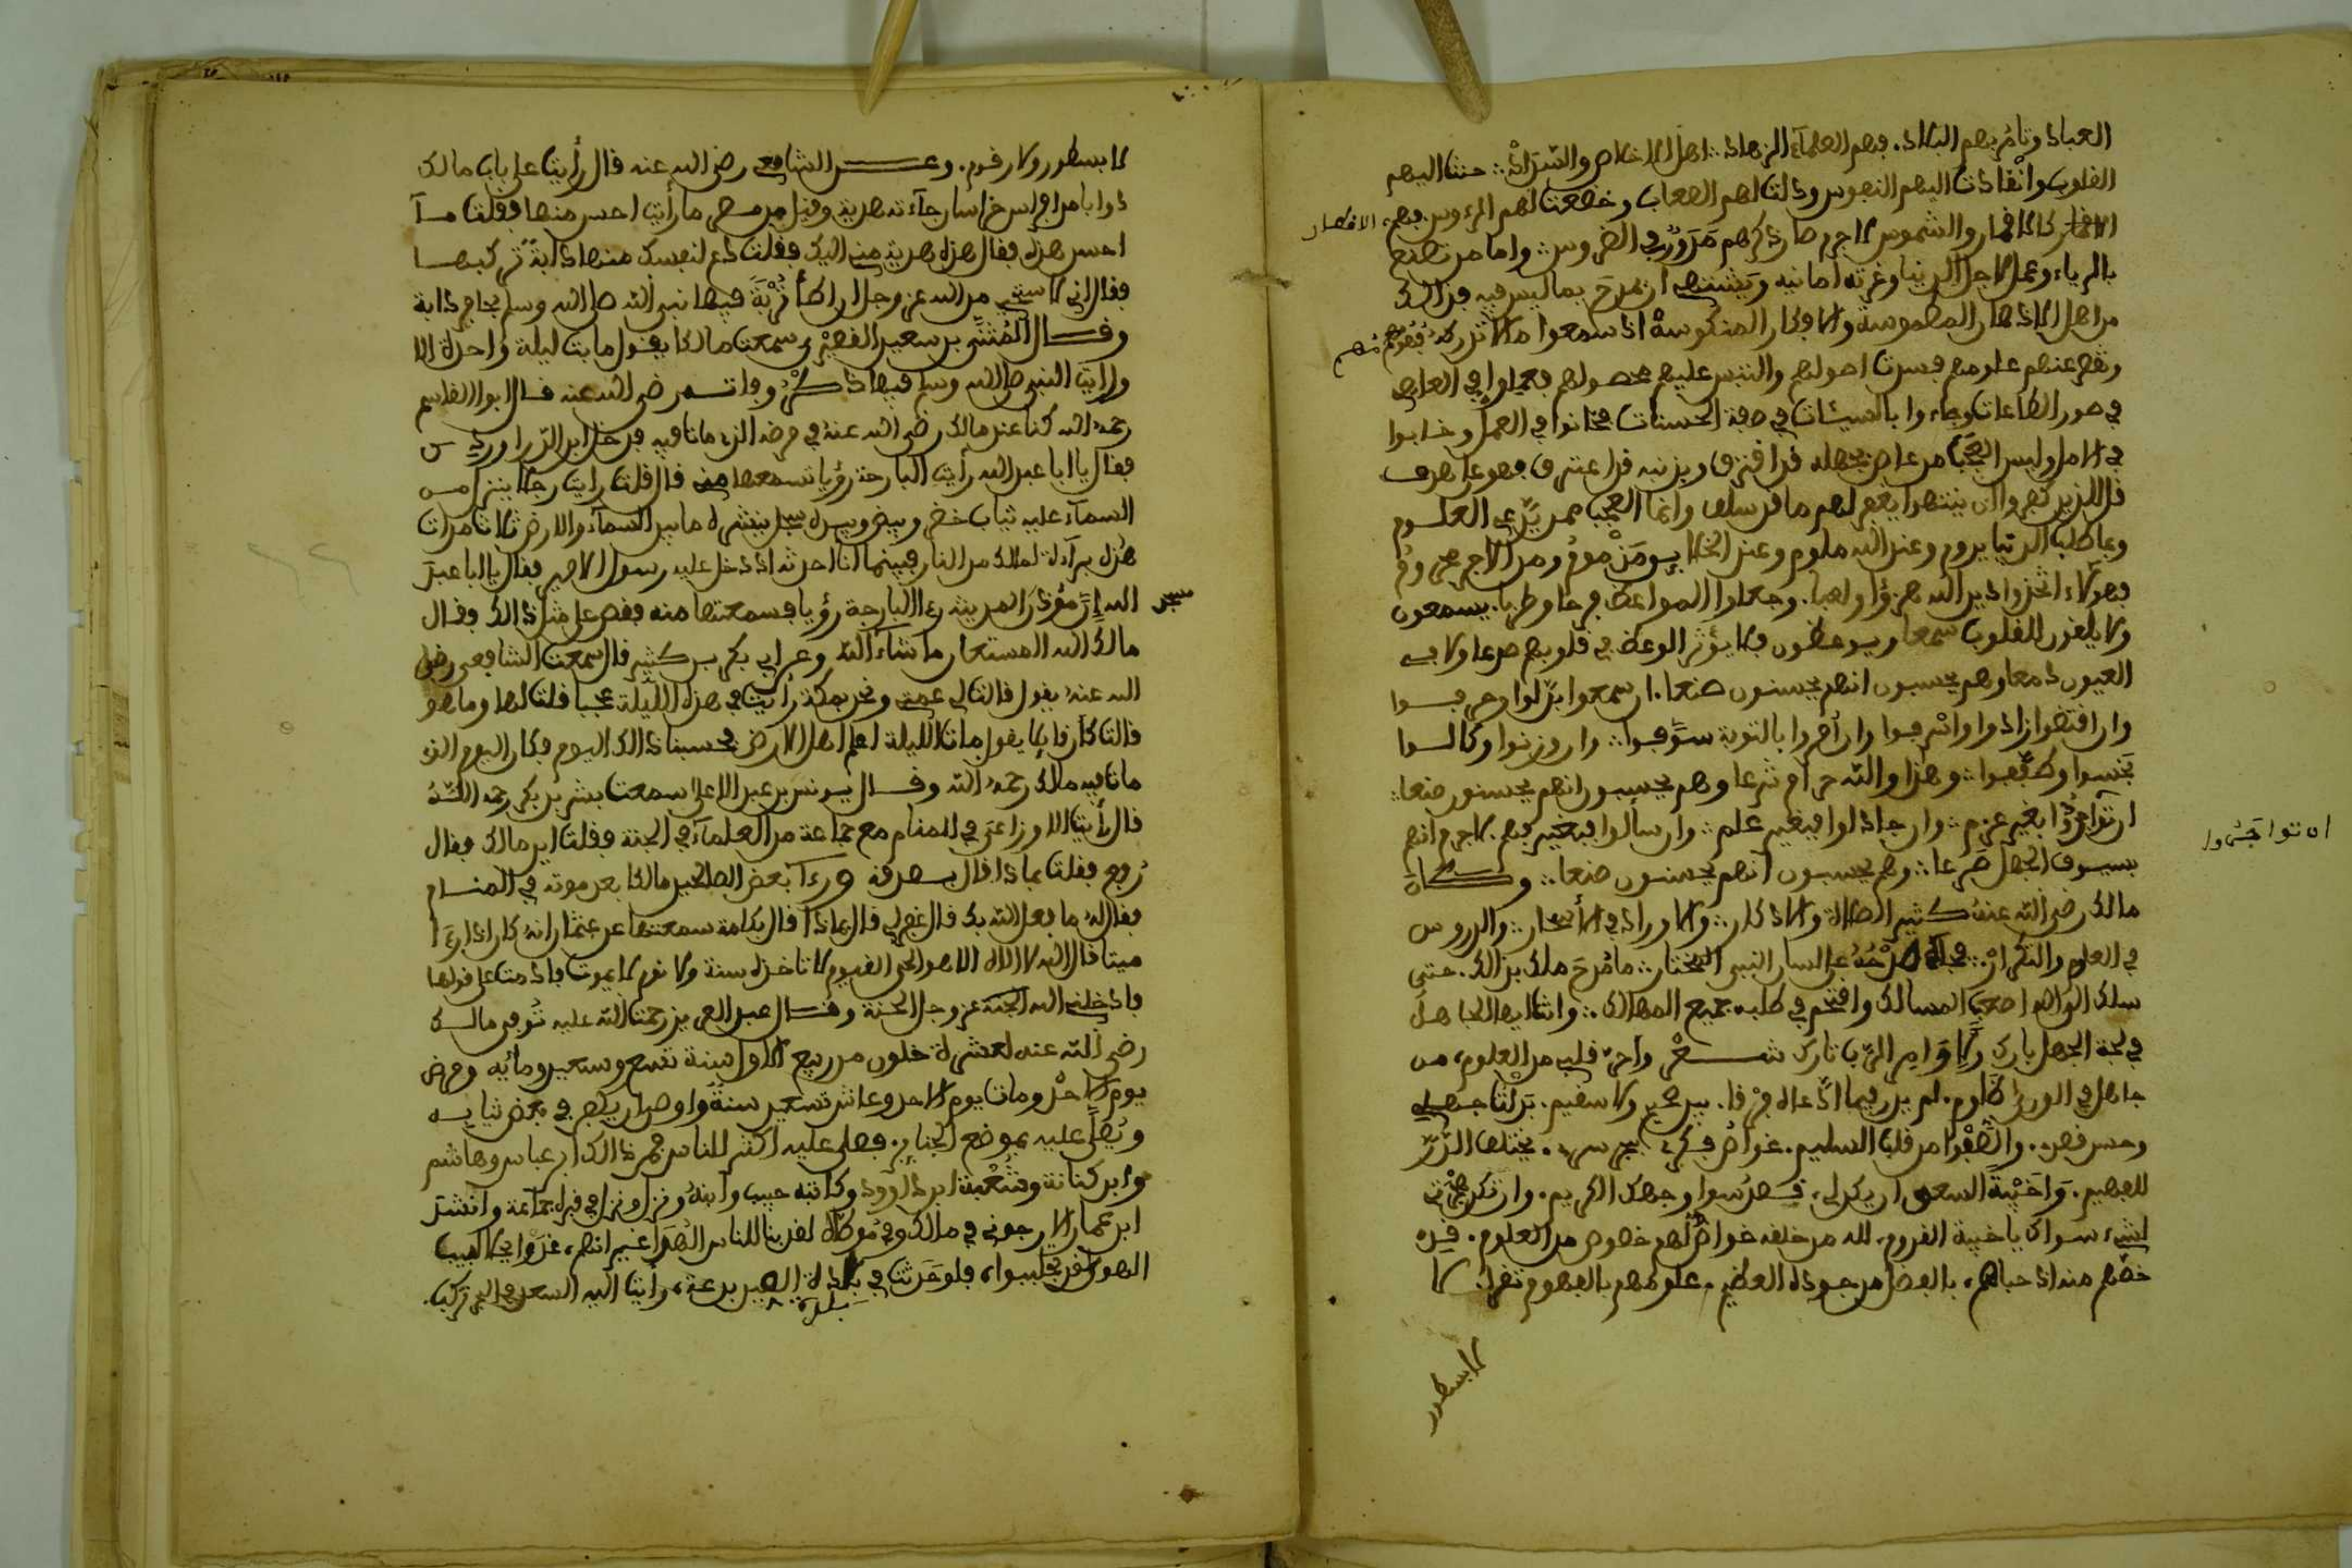 العباد وتامر بهم البلاد. فهم العلماء الزهاد. اهل الاخلاص والسداد. حنت اليهم
القلوب وانقادت اليهم النفوس وذلت لهم الصعاب وخضعت لهم الرءوس. فهم
كالاقمار والشموس لاجرم صار ذكرهم في الطروس. واما من تصنع
الاقطار
بالرياء وعمل لاجل الدنيا وغرته امانيه ويشتهي ان يمدح بما ليس فيه فذالك
من اهل الاذهان المطموسة والافكار المنكوسة اذ سمعوا مالا تدركه فهومهم
وتقصر عنهم علومهم ففسدت اصولهم والتبس عليهم محصولهم فعملوا في المعاصي
في صور الطاعات وجاءوا بالسيئات في صفة الحسنات فخانوا في العمل وخابوا
في الامل وليس العجب من عاص بجهله قد اقترف وبذنبه قد اعترف فهو على طرف
قل للذين كفروا ان ينتهوا يغفر لهم ما قد سلف وانما العجب ممن يدعي العلوم
وبها طلب الدنيا يروم وعند الله ملوم وعند الخلا يق ممقوت ومن الاجر محروم
فهؤلاء اتخذوا دين الله هزؤا ولعبا. وجعلوا المواعظ فرحا وطربا. يسمعون
ولا يلقون للقلوب سمعا ويوعظون فلا يؤثر الوعظ في قلوبهم صدعا ولا في
العيون دمعا وهم يحسبون انهم يحسنون صنعا. ان سمعوا بدلوا وحرفوا
وان اقتضوا زادوا واسرفوا وان أمروا بالتوبة سوفوا. وان وزنوا وكالوا
بخسوا وطففوا. وهذا والله حرام شرعا وهم يحسبون انهم يحسنون صنعا.
ان بغير عزم. وان جادلوا فبغير علم. وان سألوا فبغير فهم. لاجرم انهم
ان تواجروا
بسيوف الجهل صرعا. وهم يحسبون انهم يحسنون صنعا. وكان
مالك رضي الله عنه كثير الصلاة والاذكار. والاوراد في الاسحار. والدروس
في العلوم والتكرار. فجاء مدحه على لسان النبي المختار. ما مدح ملك بذالك. حتى
سلك الواله اصعب المسالك واقتحم في طلبه جميع المهالك. وانت ايها الجاهل
في لجة الجهل بارك ولاوامر الرب تارك شعر واحر قلب من العلوم، من
جاهل في الورى ظلوم. لم يدر فيما ادعاه فرقا. بين صحيح ولا سقيم.
وحسن فهم. والصفو من قلب السليم. غوامض
للفهيم. واخيبة السعي ان يكن لي، قصد سوا وجهك الكريم. وان تكن همتي
لشيء سواك يا خيبة القدوم، لله من خلقه خواص لهم خصوص من العلوم. قد
خصهم منه اذ حباهم، بالفضل من جوده العظيم، علومهم بالفهوم تقرا. لا
لا بسطور
لا بسطور ولا رقوم. وعن الشافعي رضي الله عنه قال رأيت على باب مالك
دوابا من افراس خراسان جاءته هدية وقيل من مصر ما رأيت احسن منها فقلت ما
احسن هذه فقال هذه هدية مني اليك فقلت دع لنفسك منها دابة تركبها
فقال اني لاستحي من الله عز وجل ان اطأ تربة فيها نبي الله صلى الله وسلم بحافر دابة
وقال المثنى بن سعيد القصير سمعت مالكا يقول ما بت ليلة واحدة الا
ورايت النبي صلى الله وسلم فيها ذكر وفاته رضي الله عنه قال ابوا القاسم
رحمه الله كنا عند مالك رضي الله عنه في مرضه الذي مات فيه فدخل ابن الدراوردي
فقال يا ابا عبد الله رأيت البارحة رؤيا تسمعها مني قال قلت رايت رجلا ينزل من
السماء عليه ثياب خضر وبيض وبيده سجل ينشره ما بين السماء والارض ثلاث مرات
هذه براءة لمالك من النار فبينما انا احدثه اذ دخل عليه رسول الامير فقال يا ابا عبد
الله ان مؤذن المدينة رءا البارحة رؤيا فسمعتها منه فقص علي مثل ذالك وقال
مالك الله المستعان ما شاء الله وعن ابي بكر بن كثير قال سمعت الشافعي رضي
الله عنه يقول قالت لي عمتي ونحن بمكة رأيت في هذه الليلة عجبا قلت لها وما هو
قالت كان قائلا يقول مات الليلة اعلم اهل الارض فحسبنا ذالك اليوم فكان اليوم الذي
مات فيه مالك رحمه الله وقال يونس بن عبد الاعلى سمعت بشر بن بكر رحمه الله
قال رأيت الاوزاعي في المنام مع جماعة من العلماء في الجنة فقلت اين مالك فقال
رفع فقلت بماذا قال بصدقه ورءا بعض الصالحين مالكا بعد موته في المنام
فقال له ما فعل الله بك قال غفر لي قال بماذا قال بكلمة سمعتها عن عثمان انه كان اذا رءا
ميتا قال الله لا الاه الا هو الحي القيوم لا تاخذه سنة ولا نوم لا يموت فادمت على قولها
فادخلني الله الجنة عز وجل الجنة وقال عبد العزيز رحمت الله عليه توفي مالك
رضي الله عنه لعشرة خلون من ربيع الاول سنة تسع وسبعين ومائه ومرض
يوم الاحد ومات يوم الاحد وعاش تسعين سنة واوصى ان يكفن في بعض ثيابه
ويصلى عليه بموضع الجنائز. فصلى عليه اكثر للناس فمن ذالك ابن عباس وهاشم
وابن كنانة وشعبة ابن داوود وكاتبه حبيب وابنه ونزل ونزل في قبره جماعة وانشد